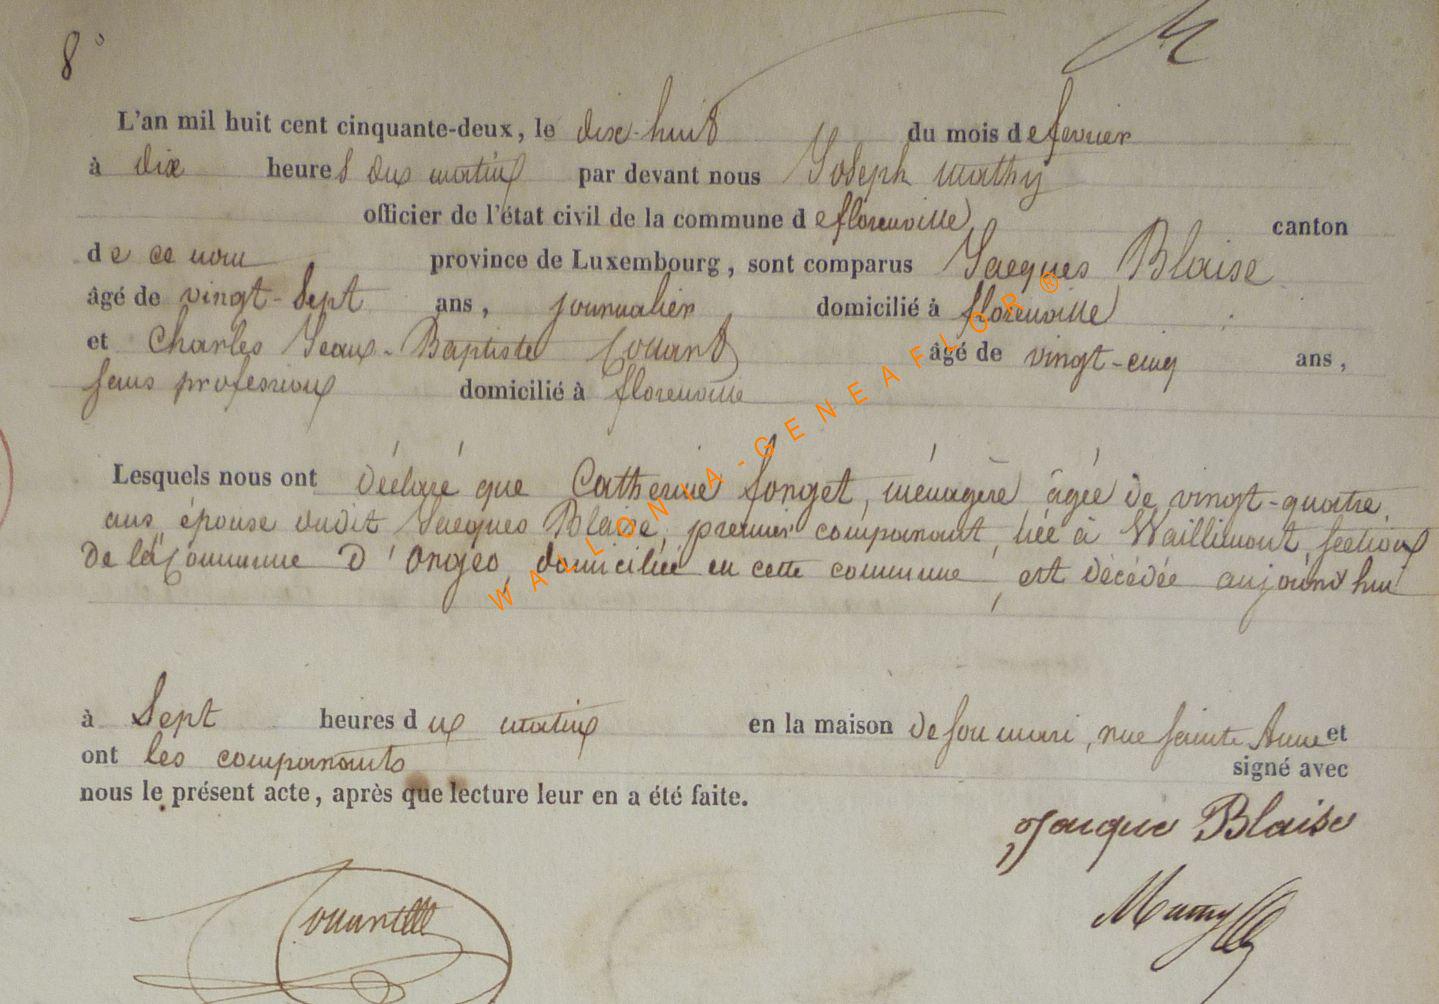 8°
L'an mil huit cent cinquante-deux, le dix-huit du mois de fevrier
à dix heures du matin par devant nous Joseph Mathy
officier de l'état civil de la commune de florenville canton
de ce nom province de Luxembourg, sont comparus Jacques Blaise
âgé de vingt-sept ans, journalier domicilié à florenville
et Charles Jean-Baptiste Couard âgé de vingt-cinq ans,
sans profession domicilié à florenville
Lesquels nous ont déclaré que Catherine fonget, ménagère, âgée de vingt-quatre
ans, épouse dudit Jacques Blaise, premier comparant, née à Waillimont, section
de la Commune D'Orgeo, domiciliée en cette commune, est décédée aujourd'hui
à sept heures du matin en la maison de son mari, rue sainte Anne et
ont les comparants signé avec
nous le présent acte, après que lecture leur en a été faite.
Jacque Blaise
WALLONIA-GENEAFLGR®